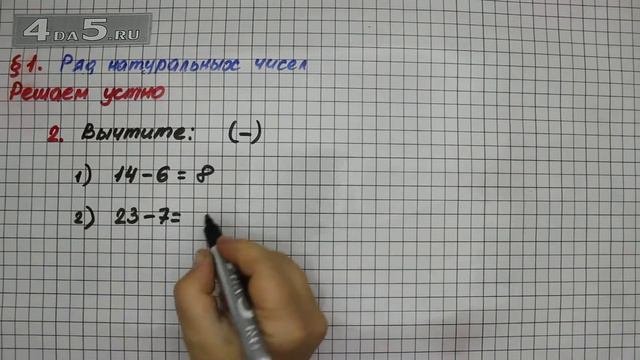 4DA5.RU
§1. Ряд натуральных чисел
Решаем устно
2. Вычтите: (−)
1) 14−6=8
2) 23−7=